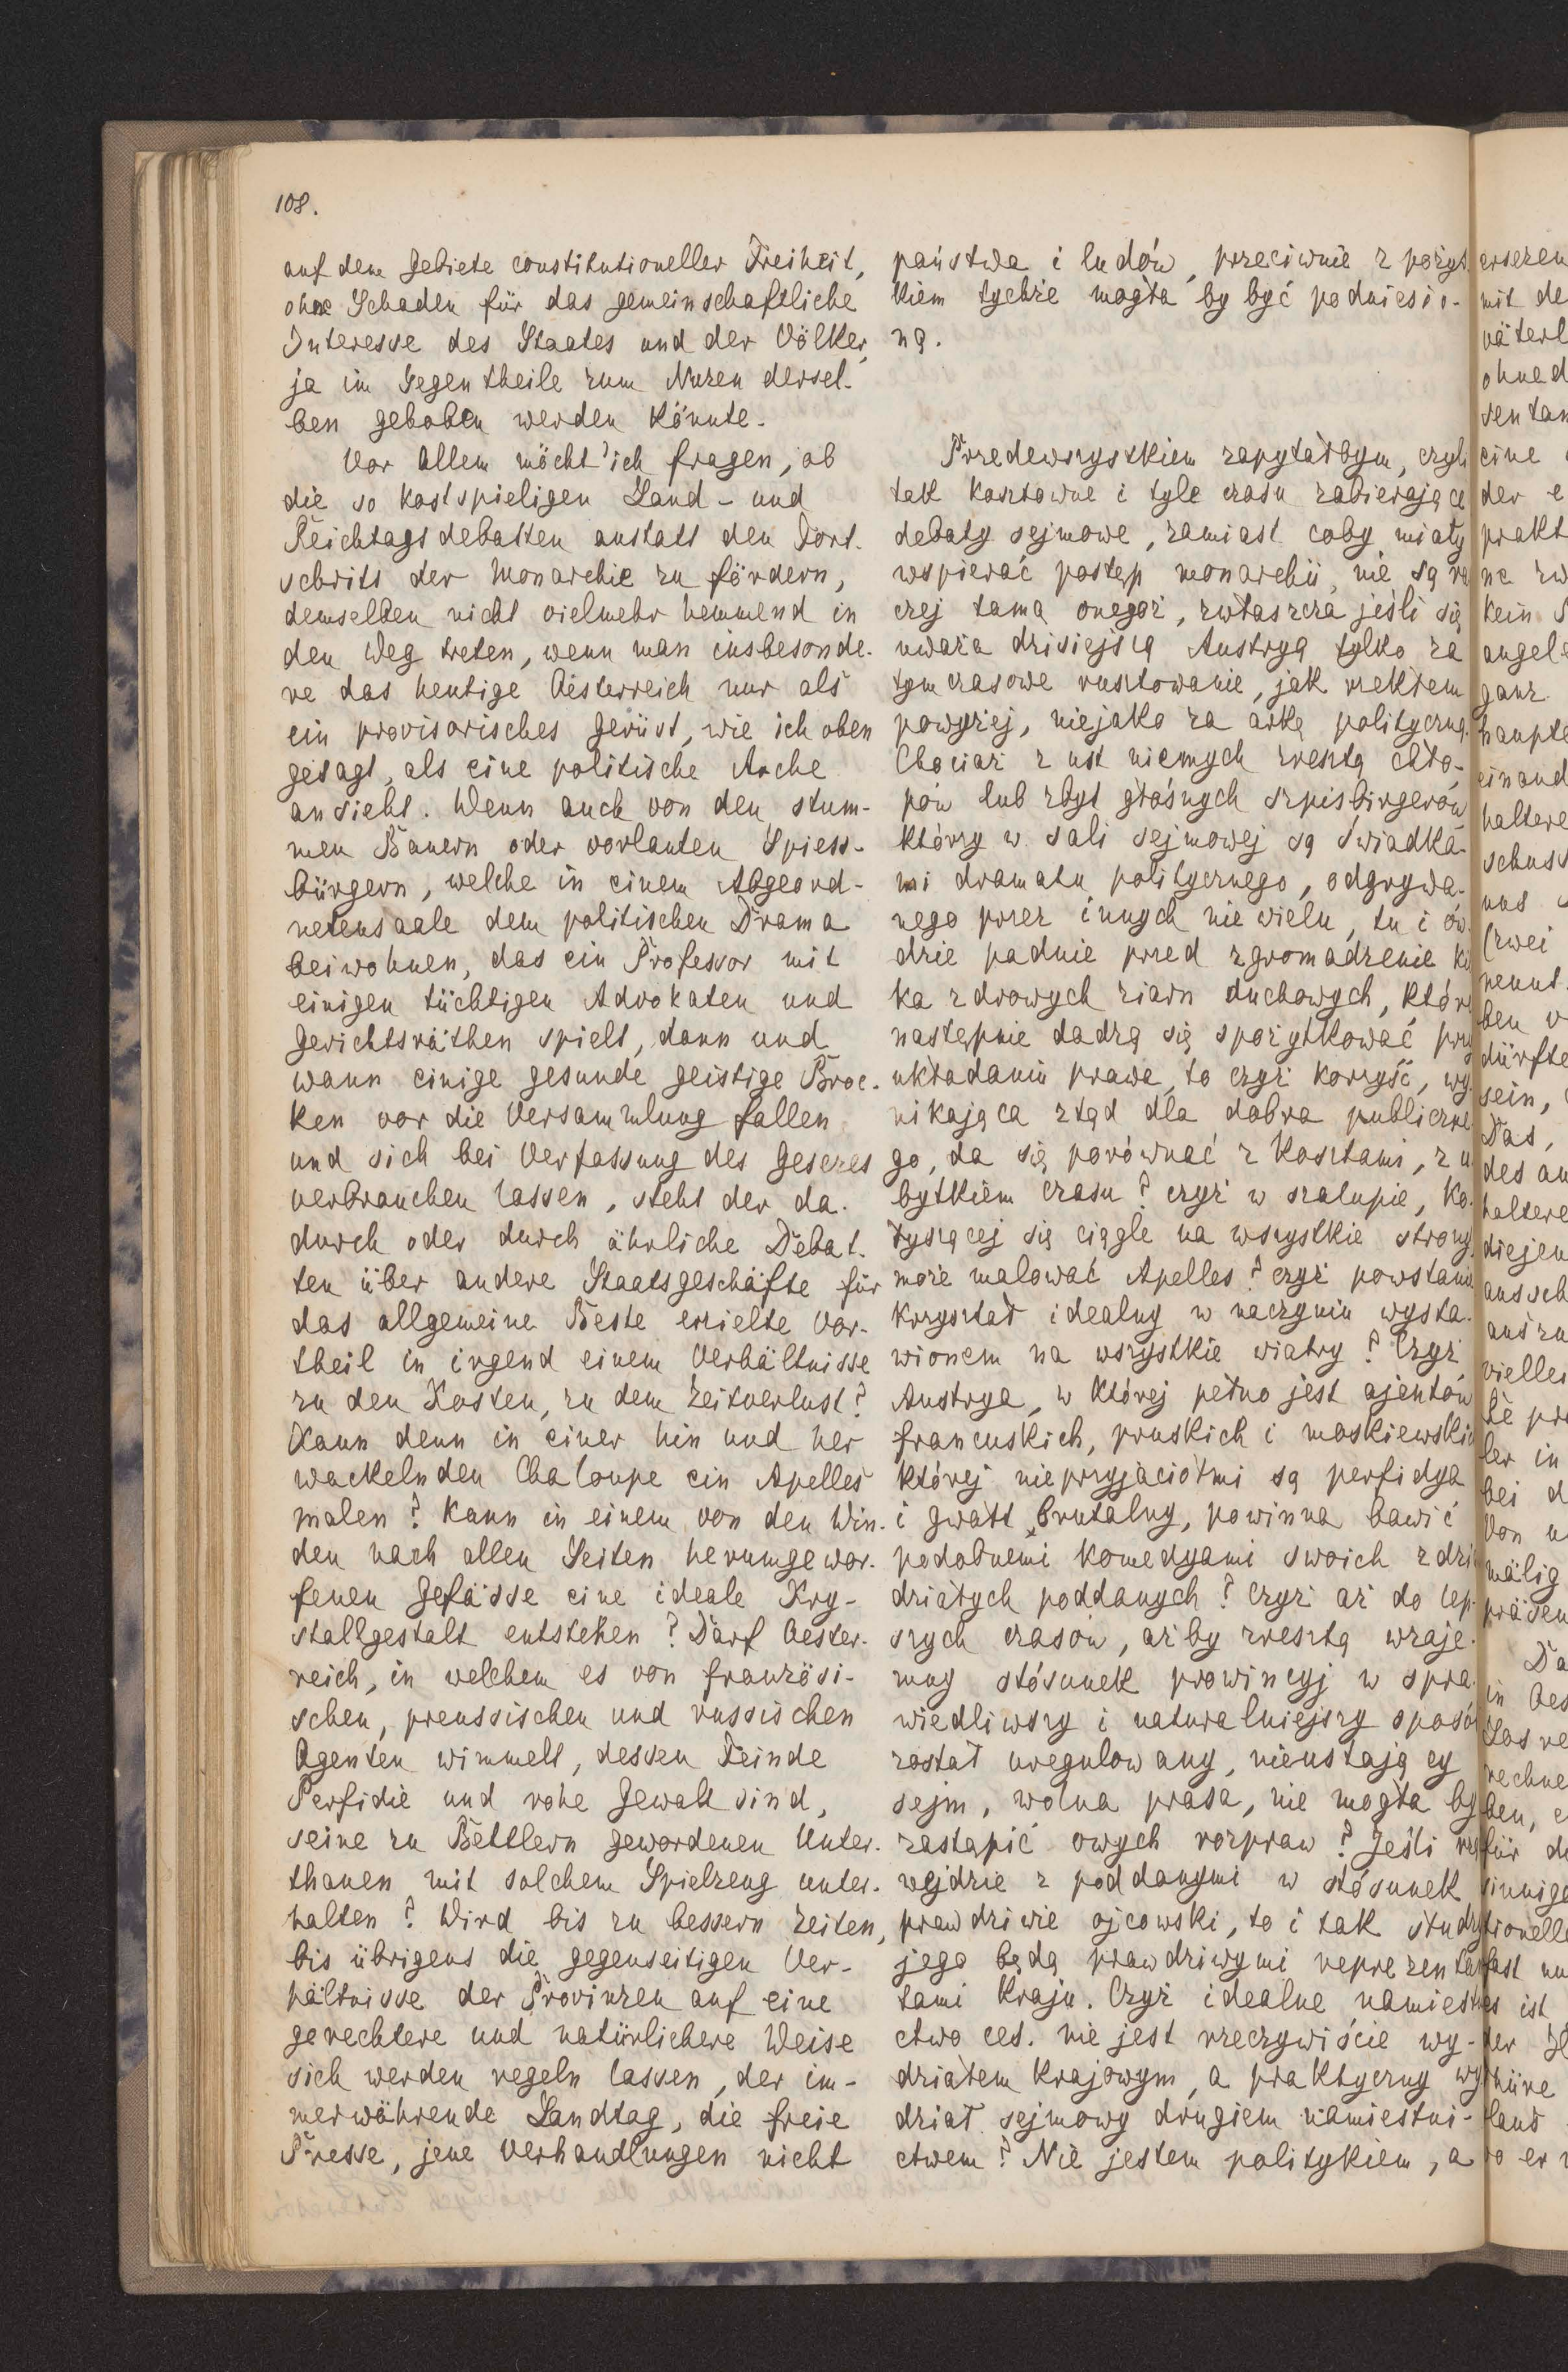 108.
auf dem Gebiete constitutioneller Freiheit,
ohne Schaden für das gemeinschaftliche
Interesse des Staates und der Völker,
ja im Gegentheile zum Nuzen dersel-
ben gehoben werden könnte.
Vor Allem möcht' ich fragen, ob
die so kostspieligen Land- und
Reichtagsdebatten anstatt den Fort-
schritt der Monarchie zu fördern,
demselben nicht vielmehr hemmend in
den Weg treten, wenn man insbesonde-
re das heutige Oesterreich nur als
ein provisorisches Gerüst, wie ich oben
gesagt, als eine politische Arche
ansieht. Wenn auch von den stum-
men Bauern oder vorlauten Spiess-
bürgern, welche in einem Abgeord-
netensaale dem politischen Drama
beiwohnen, das ein Professor mit
einigen tüchtigen Advokaten und
Gerichtsräthen spielt, dann und
wann einige gesunde geistige Broc-
ken vor die Versammlung fallen
und sich bei Verfassung des Gesezes
verbrauchen lassen, steht der da-
durch oder durch ähnliche Debat-
ten über andere Staatsgeschäfte für
das allgemeine Beste erzielte Vor-
theil in irgend einem Verhältnisse
zu den Kosten, zu dem Zeitverlust?
Kann denn in einer hin und her
wackelnden Chaloupe ein Apelles
malen? Kann in einem von den Win-
den nach allen Seiten herumgewor-
fenen Gefässe eine ideale Kry-
stallgestalt entstehen? Darf Oester-
reich, in welchem es von französi-
schen, preussischen und russischen
Agenten wimmelt, dessen Feinde
Perfidie und rohe Gewalt sind,
seine zu Bettlern gewordenen Unter-
thanen mit solchem Spielzeug unter-
halten? Wird bis zu bessern Zeiten,
bis übrigens die gegenseitigen Ver-
hältnisse der Provinzen auf eine
gerechtere und natürlichere Weise
sich werden regeln lassen, der im-
merwährende Landtag, die freie
Presse, jene Verhandlungen nicht
państwa i ludów, przeciwnie z pożyt
kiem tychże mogła by być podniesio-
ną.
Przedewszystkiem zapytałbym, czyli
tak kosztowne i tyle czasu zabierające
debaty sejmowe, zamiast coby miały
wspierać postęp monarchii, nie są ra
czej tamą onegoż, zwłaszcza jeśli się
uważa dzisiejszą Austryą tylko za
tymczasowe rusztowanie, jak rzekłem
powyżej, niejako za arkę polityczną.
Chociaż z ust niemych zresztą chło-
pów lub zbyt głośnych szpisbirgerów
którzy w sali sejmowej są świadka-
mi dramatu politycznego, odgrywa-
nego przez innych niewielu, tu i ów-
dzie padnie przed zgromadzenie kil
ka zdrowych ziarn duchowych, któr
następnie dadzą się spożytkować przy
układaniu prawa, to czyż korzyść, wy-
nikająca ztąd dla dobra publiczne
go, da się porównać z kosztami, z u
bytkiem czasu? czyż w szalupie, ko-
łyszącej się ciągle na wszystkie strony,
może malować Apelles? czyż powstanie
kryształ idealny w naczyniu wysta-
wionem na wszystkie wiatry? Czyż
Austrya, w której pełno jest ajentów
francuskich, pruskich i moskiewskich
której nieprzyjaciółmi są perfidya
i gwałt brutalny, powinna bawić
podobnemi komedyami swoich zdzia
działych poddanych? Czyż aż do lep-
szych czasów, ażby zresztą wzaje-
mny stósunek prowincyj w spra-
wiedliwszy i naturalniejszy sposób
został uregulowany, nieustający
sejm, wolna prasa, nie mogła by
zastąpić owych rozpraw? Jeśli rzą
wejdzie z poddanymi w stósunek
prawdziwie ojcowski, to i tak
jego będą prawdziwymi reprezentan
tami kraju. Czyż idealne namiestni
ctwo ces. nie jest rzeczywiście wy-
działem krajowym, a praktyczny wy
dział sejmowy drugiem namiestni-
ctwem? Nie jestem politykiem, a